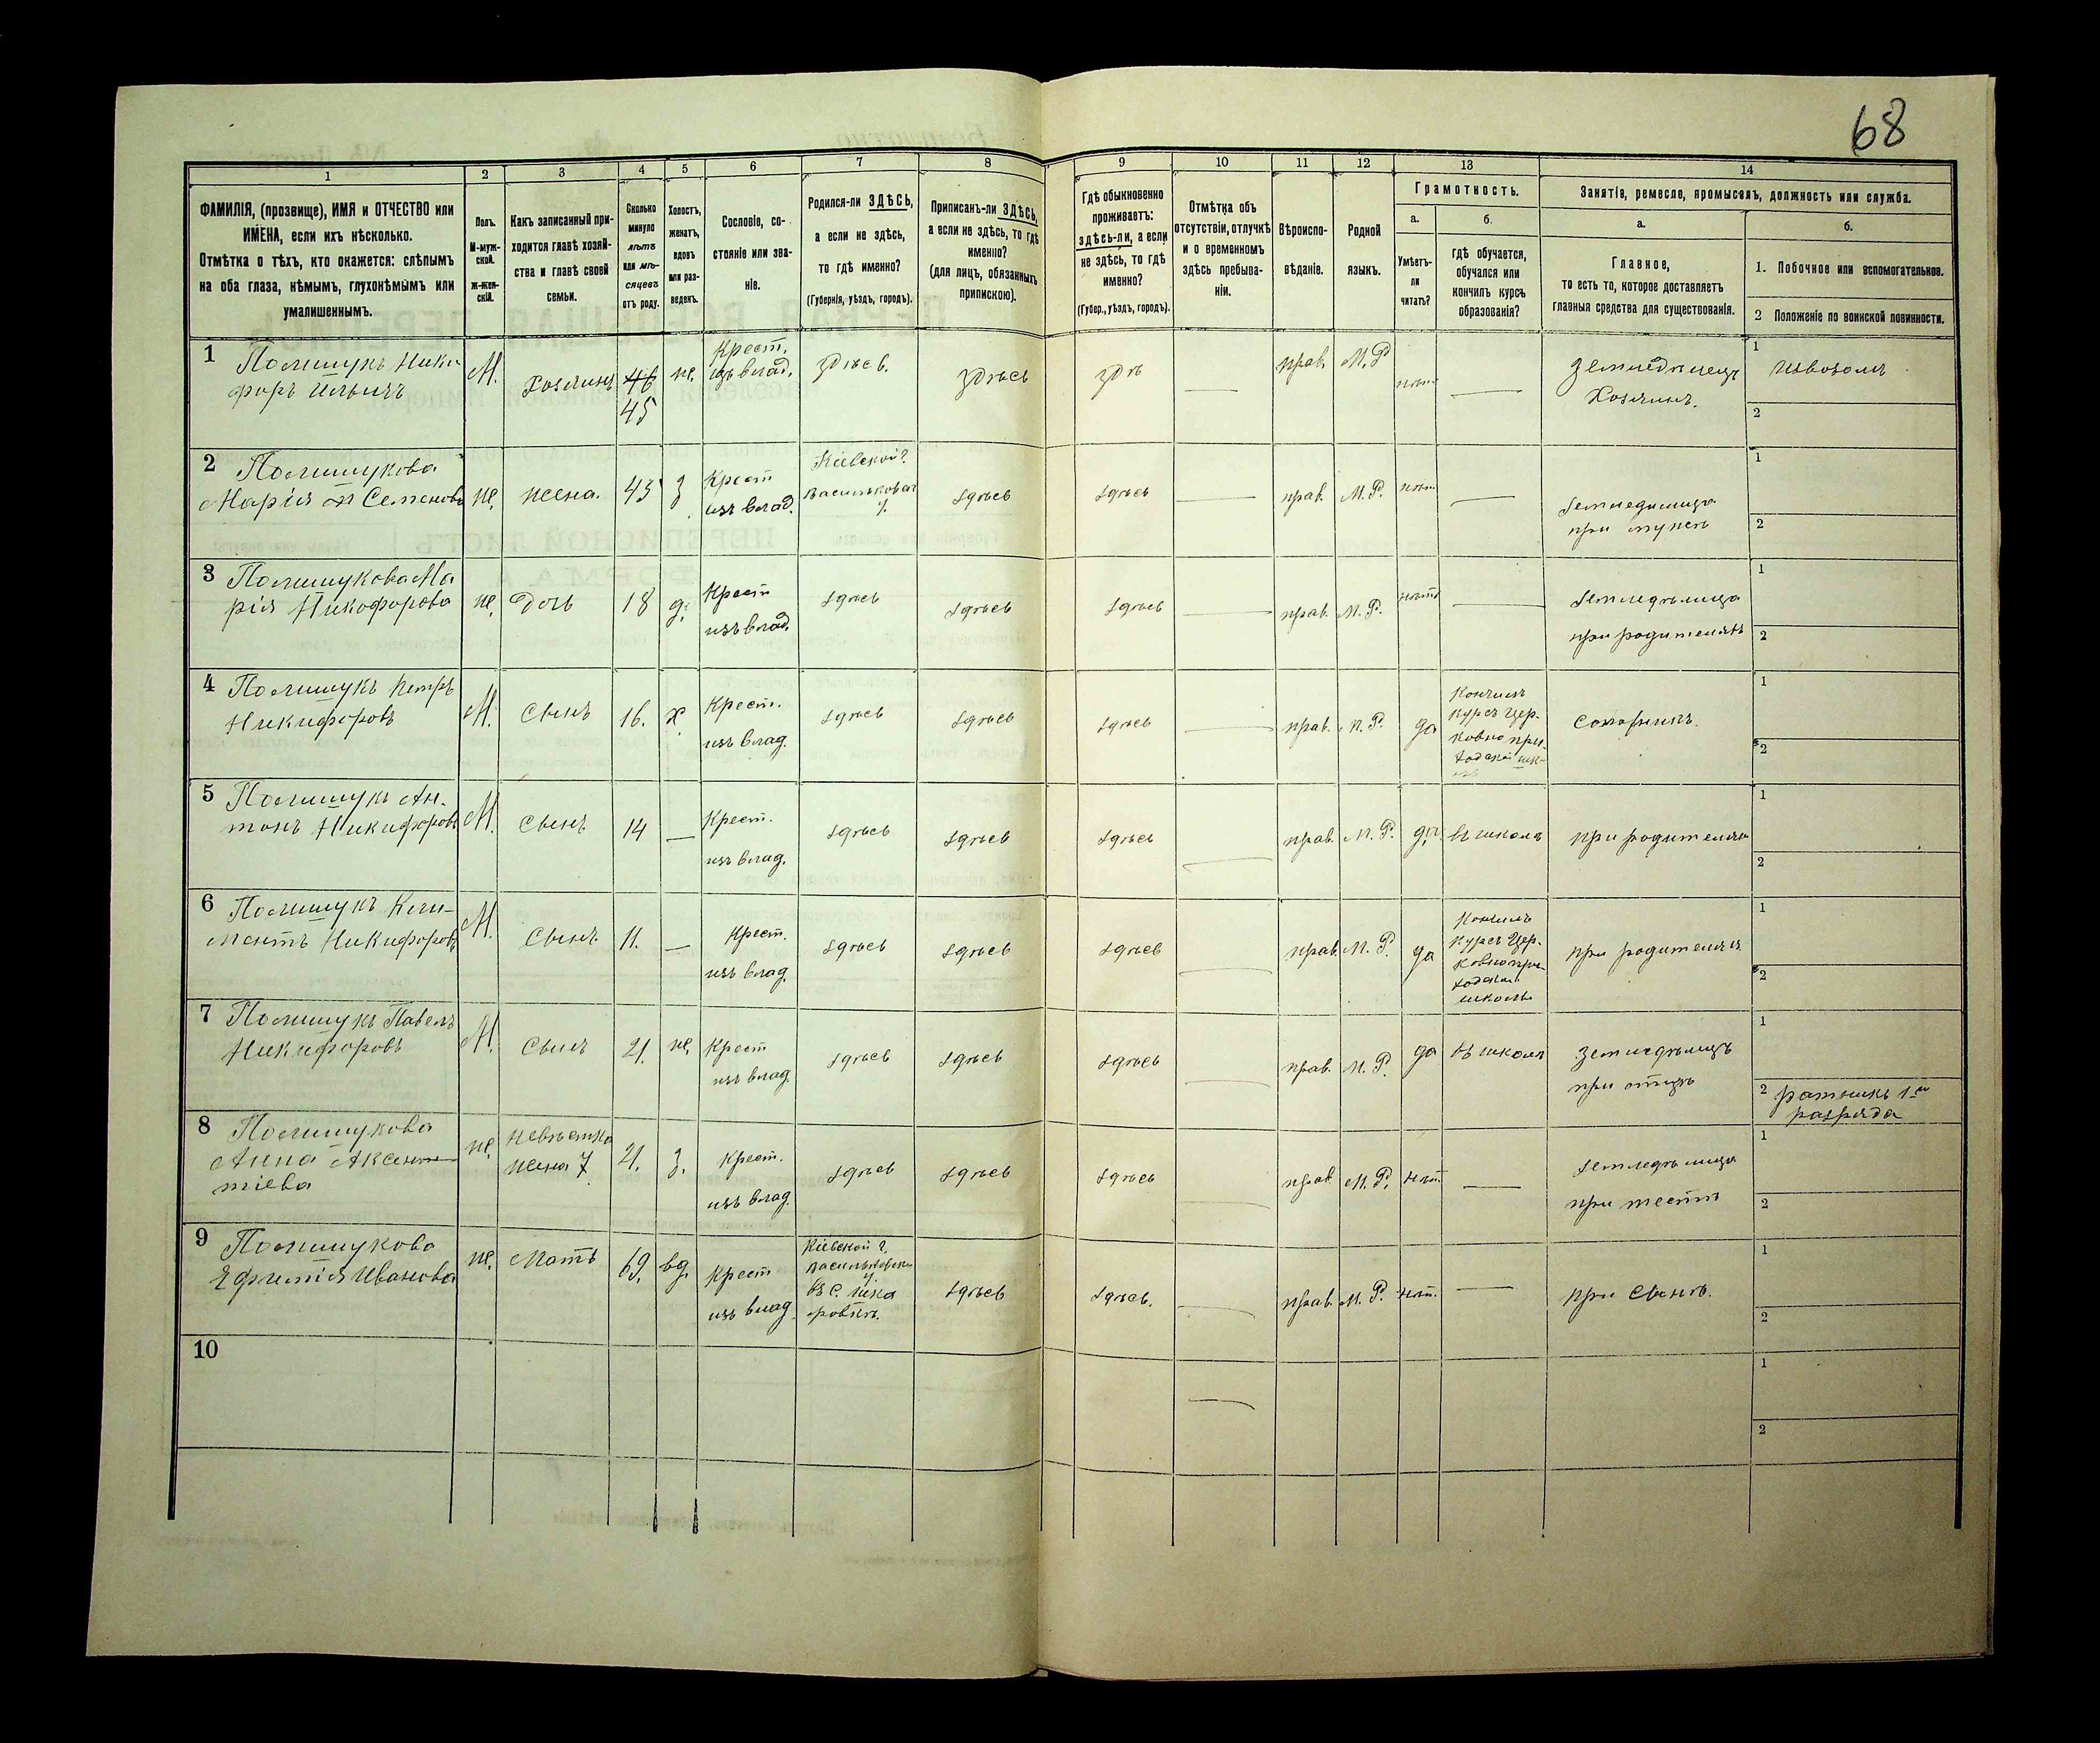 68
1
2
3
4
5
6
7
8
9
10
11
12
13
14
ФАМИЛІЯ, (прозвище), ИМЯ и ОТЧЕСТВО или
ИМЕНА, если ихъ нѣсколько.
Отмѣтка о тѣхъ, кто окажется: слѣпымъ
на оба глаза, нѣмымъ, глухонѣмымъ или
умалишеннымъ.
Полъ.
М-муж-
ской.
Ж-жен-
скій.
Какъ записанный при-
ходится главѣ хозяй-
ства и главѣ своей
семьи.
Сколько
минуло
лѣтъ
или мѣ-
сяцевъ
отъ роду.
Холостъ,
женатъ,
вдовъ
или раз-
веденъ.
Сословіе, со-
стояніе или зва-
ніе.
Родился-ли ЗДѢСЬ,
а если не здѣсь,
то гдѣ именно?
(Губернія, уѣздъ, городъ).
Приписанъ-ли ЗДѢСЬ,
а если не здѣсь, то гдѣ
именно?
(для лицъ, обязанныхъ
припискою).
Гдѣ обыкновенно
проживаетъ:
здѣсь-ли, а если
не здѣсь, то гдѣ
именно?
(Губер., уѣздъ, городъ).
Отмѣтка объ
отсутствіи, отлучкѣ
и о временномъ
здѣсь пребыва-
ніи.
Вѣроиспо-
вѣданіе.
Родной
языкъ.
Грамотность.
а.
Умѣетъ-
ли
читать?
б.
гдѣ обучается,
обучался или
кончилъ курсъ
образованія?
Занятія, ремесло, промыселъ, должность или служба.
а.
Главное,
то есть то, которое доставляетъ
главныя средства для существованія.
б.
1. Побочное или вспомогательное.
2 Положеніе по воинской повинности.
1 Полищукъ Ники-
форъ Ильичъ
М.
Хозяинъ
46
45
ж.
Крест.
изъ влад.
здѣсь.
здѣсь
здѣ
прав.
М. Р
нѣтъ
Земледѣлецъ
Хозяинъ.
1 Извозомъ
2
2 Полищукова
Марія Семенова
ж.
жена.
43
з
Крест
изъ влад.
Кіевской г.
Васильковск
у.
здѣсь
здѣсь
прав.
М. Р.
нѣтъ
Земледѣлица
при мужѣ
1
2
3 Полищукова Ма
рія Никофорова
ж.
дочь
18
д.
Крест
изъ влад.
здѣсь
здѣсь
здѣсь
прав.
М. Р.
нѣтъ
Земледѣлица
при родителяхъ
1
2
4 Полищукъ Петръ
Никифоровъ
М.
Сынъ
16.
х.
Крест.
изъ влад.
здѣсь
здѣсь
здѣсь
прав.
М. Р.
да
Кончилъ
курсъ Цер-
ковно при-
ходской шк-
1
2
5 Полищукъ Ан-
тонъ Никифоровъ
М.
Сынъ
14
Крест.
изъ влад.
здѣсь
здѣсь
здѣсь
прав.
М. Р.
да
въ школѣ
при родителяхъ
1
2
6 Полищукъ Кли-
ментъ Никифоровъ
М.
Сынъ
11.
Крест.
изъ влад.
здѣсь
здѣсь
здѣсь
прав.
М. Р.
да
Кончилъ
курсъ Цер-
ковнопри-
ходской
школы
при родителяхъ
1
2
7 Полищукъ Павелъ
Никифоровъ
М.
Сынъ
21.
ж.
Крест
изъ влад.
здѣсь
здѣсь
здѣсь
прав.
М. Р.
да
въ школѣ
Земледѣлецъ
при отцѣ
1
2 ратникъ 1го
разряда
8 Полищукова
Анна Аксен-
тіева
ж.
невѣстка
жена 7
21.
з.
Крест.
изъ влад.
здѣсь
здѣсь
здѣсь
прав.
М. Р.
нѣт.
Земледѣлица
при тестѣ
1
2
9 Полищукова
Ефимія Иванова
ж.
Мать
69.
вд.
Крест
изъ влад.
Кіевской г.
Васильковск
у.
здѣсь
здѣсь.
прав.
М. Р.
нѣт.
при сынѣ.
1
2
10
1
2